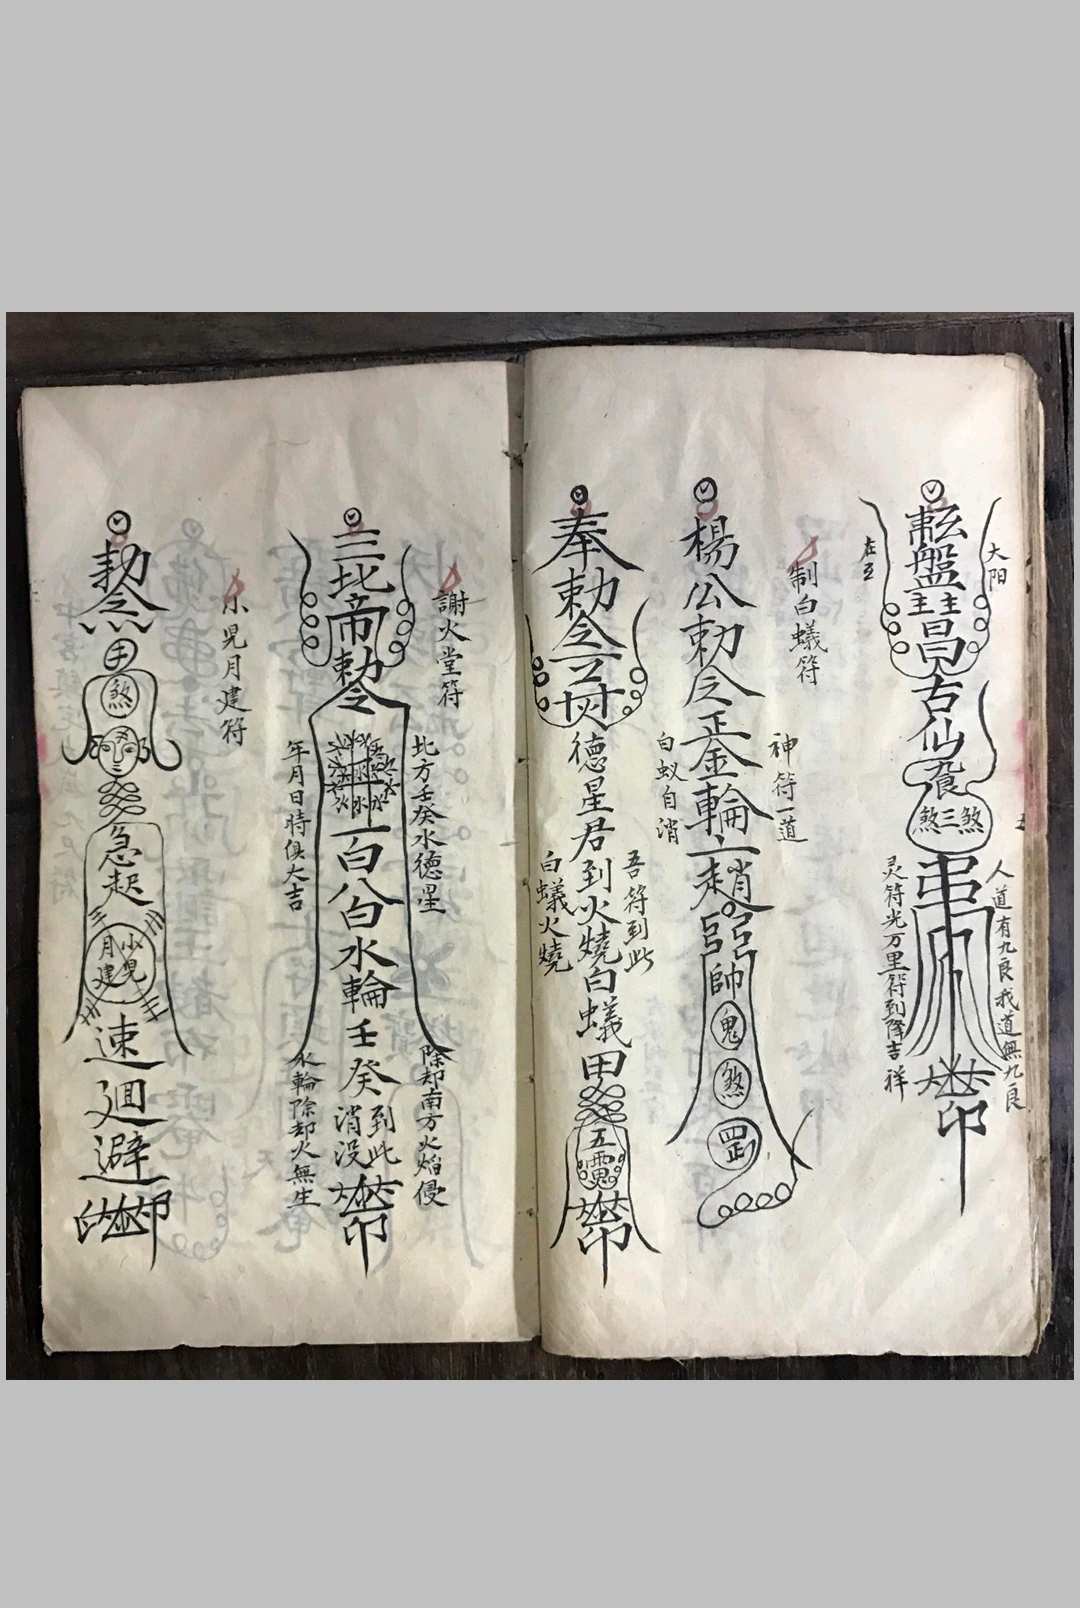 大阳
昌
古仙
煞三煞
人道有九良我道無九良
灵符光万里符到降吉祥
印
制白蟻符
楊公勅令
金輪
帥
鬼
煞
罡
神符一道
白蚁自消
奉勅令
德星君到火燒白蟻
五
印
吾符到此
白蟻火燒
謝火堂符
三北帝勅令
一百八白水輪壬癸到此消没
印
北方壬癸水德星
年月日時俱大吉
除却南方火焰侵
水輪除却火無生
小児月建符
勅令
煞
急起
小児月建
速迴避
印